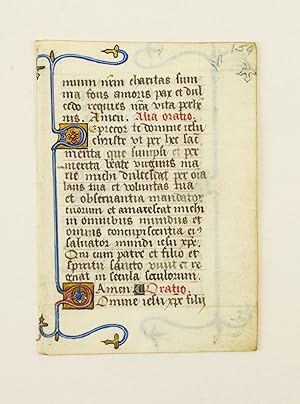 154
mum nr̃m charitas sum
ma fons amoris pax et dul
cedo requies nr̃a vita perhe
nis. Amen. Alia oratio.
Deprecor te domine iesu
christe vt per hec sacra
menta que sumpsi et per
merita beate virginis ma
rie michi dulcescat per oia
laus tua et voluntas tua
et obseruantia mandator
tuorum et amarescat michi
in omnibus mundus et
omnis concupiscentia ei
saluator mundi iesu xp̃e.
Qui cum patre et filio et
spiritu sancto viuit et re
gnat in secula seculorum.
Amen. Oratio.
Domine iesu xp̃e filij